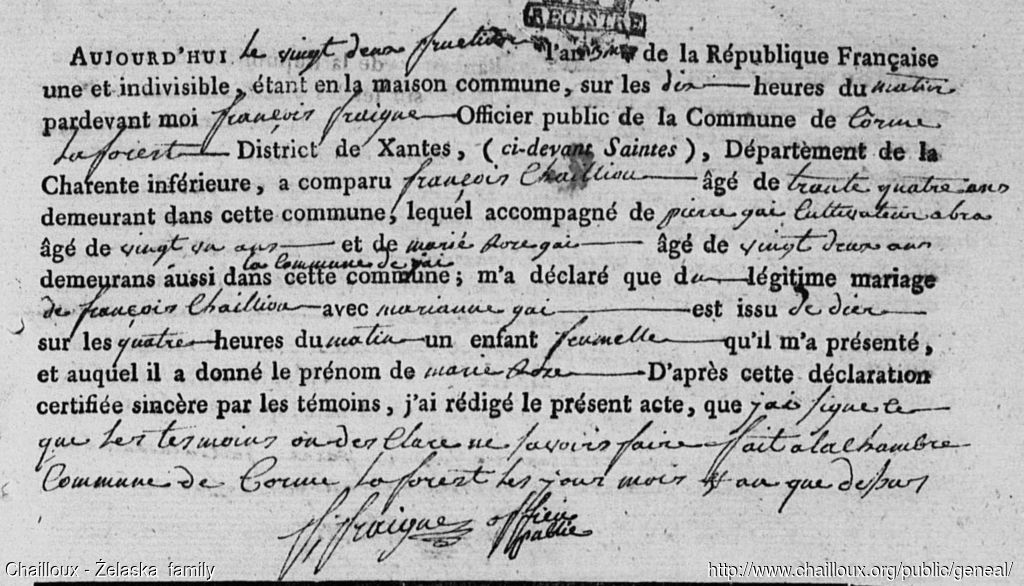 REGISTRE
AUJOURD'HUI le vingt deux fructidor l'an 3me de la République Française
une et indivisible, étant en la maison commune, sur les dix heures du matin
pardevant moi françois fraigne Officier public de la Commune de Corme
La forest District de Xantes, (ci-devant Saintes), Département de la
Charente inférieure, a comparu françois Chaillou âgé de trante quatre ans
demeurant dans cette commune, lequel accompagné de pierre gai Cultivateur
âgé de vingt un ans et de marie Roze gai âgé de vingt deux ans
la Commune de
demeurans aussi dans cette commune; m'a déclaré que du légitime mariage
de françois Chaillou avec marianne gai est issu de dier
sur les quatre heures du matin un enfant feumelle qu'il m'a présenté,
et auquel il a donné le prénom de marie Roze D'après cette déclaration
certifiée sincère par les témoins, j'ai rédigé le présent acte, que jai signe le
que les tesmoins on desClare ne savoirs faire fait a la Chambre
Commune de Corme La forest les jour mois & an que desus
f fraigne officier
public
Chailloux - Želaska family
http://www.chailloux.org/public/geneal/